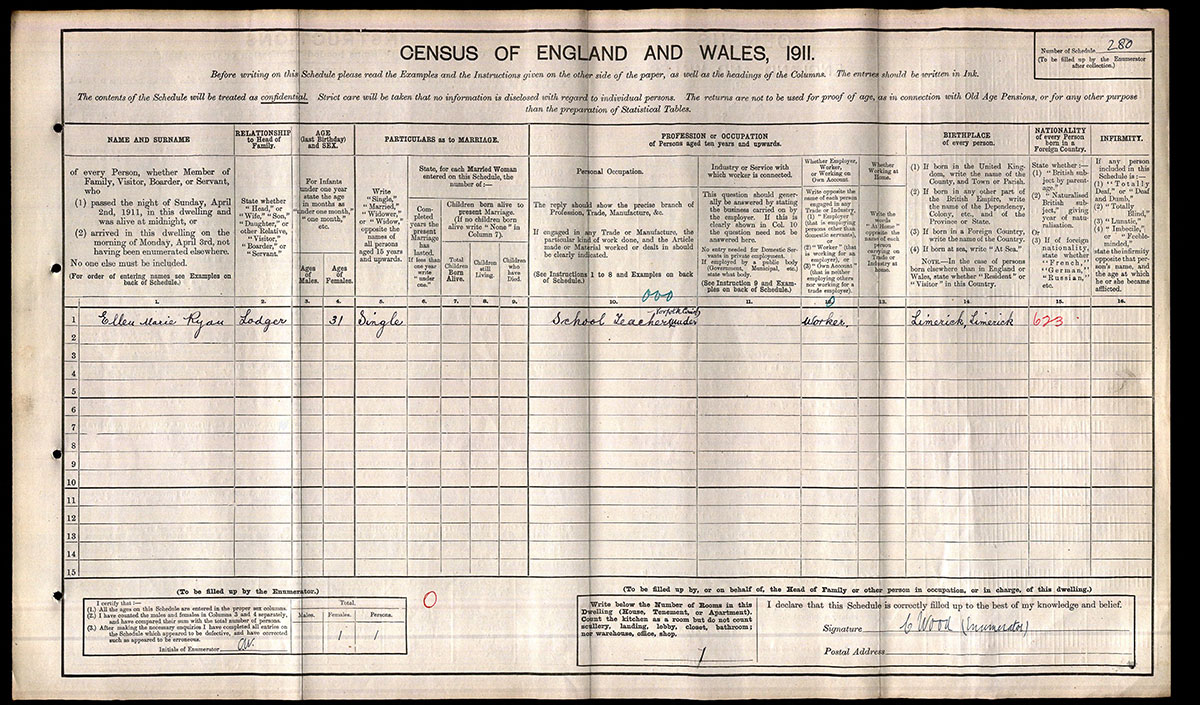 CENSUS OF ENGLAND AND WALES, 1911.
Number of Schedule 280
(To be filled up by the Enumerator
after collection.)
Before writing on this Schedule please read the Examples and the Instructions given on the other side of the paper, as well as the headings of the Columns. The entries should be written in Ink.
The contents of the Schedule will be treated as confidential. Strict care will be taken that no information is disclosed with regard to individual persons. The returns are not to be used for proof of age, as in connection with Old Age Pensions, or for any other purpose
than the preparation of Statistical Tables.
NAME AND SURNAME
of every Person, whether Member of
Family, Visitor, Boarder, or Servant,
who
(1) passed the night of Sunday, April
2nd, 1911, in this dwelling and
was alive at midnight, or
(2) arrived in this dwelling on the
morning of Monday, April 3rd, not
having been enumerated elsewhere.
No one else must be included.
(For order of entering names see Examples on
back of Schedule.)
RELATIONSHIP
to Head of
Family.
State whether
"Head," or
"Wife," "Son,"
"Daughter," or
other Relative,
"Visitor,"
"Boarder," or
"Servant."
AGE
(last Birthday)
and SEX.
For Infants
under one year
state the age
in months as
"under one month,"
"one month,"
etc.
Ages
of
Males.
Ages
of
Females.
PARTICULARS as to MARRIAGE.
Write
"Single,"
"Married,"
"Widower,"
or "Widow,"
opposite the
names of
all persons
aged 15 years
and upwards.
State, for each Married Woman
entered on this Schedule, the
number of:—
Completed
years the
present
Marriage
has
lasted.
If less than
one year
write
"under
one."
Children born alive to
present Marriage.
(If no children born
alive write "None" in
Column 7).
Total
Children
Born
Alive.
Children
still
Living.
Children
who
have
Died.
PROFESSION or OCCUPATION
of Persons aged ten years and upwards.
Personal Occupation.
The reply should show the precise branch of
Profession, Trade, Manufacture, &c.
If engaged in any Trade or Manufacture, the
particular kind of work done, and the Article
made or Material worked or dealt in should
be clearly indicated.
(See Instructions 1 to 8 and Examples on back
of Schedule.)
000
Industry or Service with
which worker is connected.
This question should generally
be answered by stating
the business carried on by
the employer. If this is
clearly shown in Col. 10
the question need not be
answered here.
No entry needed for Domestic Servants
in private employment.
If employed by a public body
(Government, Municipal, etc.)
state what body.
(See Instruction 9 and Examples
on back of Schedule.)
Whether Employer,
Worker,
or Working on
Own Account.
Write opposite the
name of each person
engaged in any
Trade or Industry,
(1) "Employer"
(that is employing
persons other than
domestic servants),
or
(2) "Worker" (that
is working for an
employer), or
(3) "Own Account"
(that is neither
employing others
nor working for a
trade employer).
Whether
Working at
Home.
Write the
words
"At Home"
opposite the
name of each
person
carrying on
Trade or
Industry at
home.
BIRTHPLACE
of every person.
(1) If born in the United Kingdom,
write the name of the
County, and Town or Parish.
(2) If born in any other part of
the British Empire, write
the name of the Dependency,
Colony, etc., and of the
Province or State.
(3) If born in a Foreign Country,
write the name of the Country.
(4) If born at sea, write "At Sea."
NOTE.—In the case of persons
born elsewhere than in England or
Wales, state whether "Resident" or
"Visitor" in this Country.
NATIONALITY
of every Person
born in a
Foreign Country.
State whether:—
(1) "British subject
by parentage."
(2) "Naturalised
British subject,"
giving
year of naturalisation.
Or
(3) If of foreign
nationality,
state whether
"French,"
"German,"
"Russian,"
etc.
INFIRMITY.
If any person
included in this
Schedule is:—
(1) "Totally
Deaf," or "Deaf
and Dumb,"
(2) "Totally
Blind,"
(3) "Lunatic,"
(4) "Imbecile,"
or "Feeble-minded,"
state the infirmity
opposite that person's
name, and
the age at which
he or she became
afflicted.
1. 2. 3. 4. 5. 6. 7. 8. 9. 10. 11. 12. 13. 14. 15. 16.
1 Ellen Marie Ryan Lodger 31 Single School Teacher under Norfolk County Worker. Limerick, Limerick 623
2
3
4
5
6
7
8
9
10
11
12
13
14
15
(To be filled up by the Enumerator.)
I certify that:—
(1.) All the ages on this Schedule are entered in the proper sex columns.
(2.) I have counted the males and females in Columns 3 and 4 separately,
and have compared their sum with the total number of persons.
(3.) After making the necessary enquiries I have completed all entries on
the Schedule which appeared to be defective, and have corrected
such as appeared to be erroneous.
Initials of Enumerator
Total.
Males. Females. Persons.
1 1
0
(To be filled up by, or on behalf of, the Head of Family or other person in occupation, or in charge, of this dwelling.)
Write below the Number of Rooms in this
Dwelling (House, Tenement, or Apartment).
Count the kitchen as a room but do not count
scullery, landing, lobby, closet, bathroom;
nor warehouse, office, shop.
1
I declare that this Schedule is correctly filled up to the best of my knowledge and belief.
Signature C Wood (Enumerator)
Postal Address